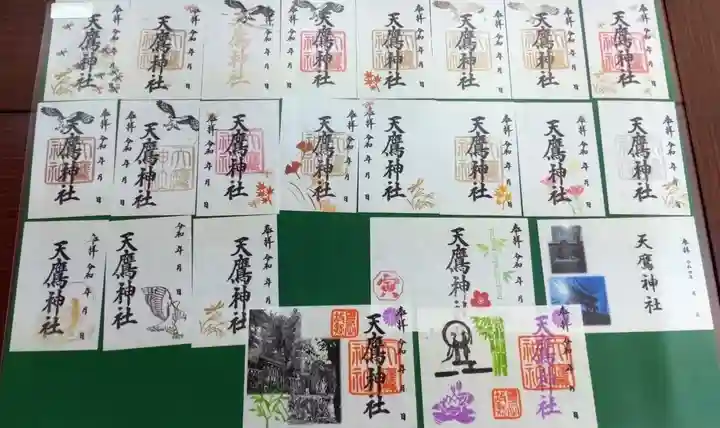 奉拝 令和 年 月 日
天鷹神社
奉拝 令和 年 月 日
天鷹神社
奉拝 令和 年 月 日
天鷹神社
奉拝 令和 年 月 日
天鷹神社
奉拝 令和 年 月 日
天鷹神社
奉拝 令和 年 月 日
天鷹神社
奉拝 令和 年 月 日
天鷹神社
奉拝 令和 年 月 日
天鷹神社
奉拝 令和 年 月 日
天鷹神社
奉拝 令和 年 月 日
天鷹神社
奉拝 令和 年 月 日
天鷹神社
奉拝 令和 年 月 日
天鷹神社
奉拝 令和 年 月 日
天鷹神社
奉拝 令和 年 月 日
天鷹神社
奉拝 令和 年 月 日
天鷹神社
奉拝 令和 年 月 日
天鷹神社
奉拝 令和 年 月 日
天鷹神社
奉拝 令和 年 月 日
天鷹神社
寅
奉拝 月 日
天鷹神社
奉拝 令和 年 月 日
天鷹神社
奉拝 令和 年 月 日
天鷹神社